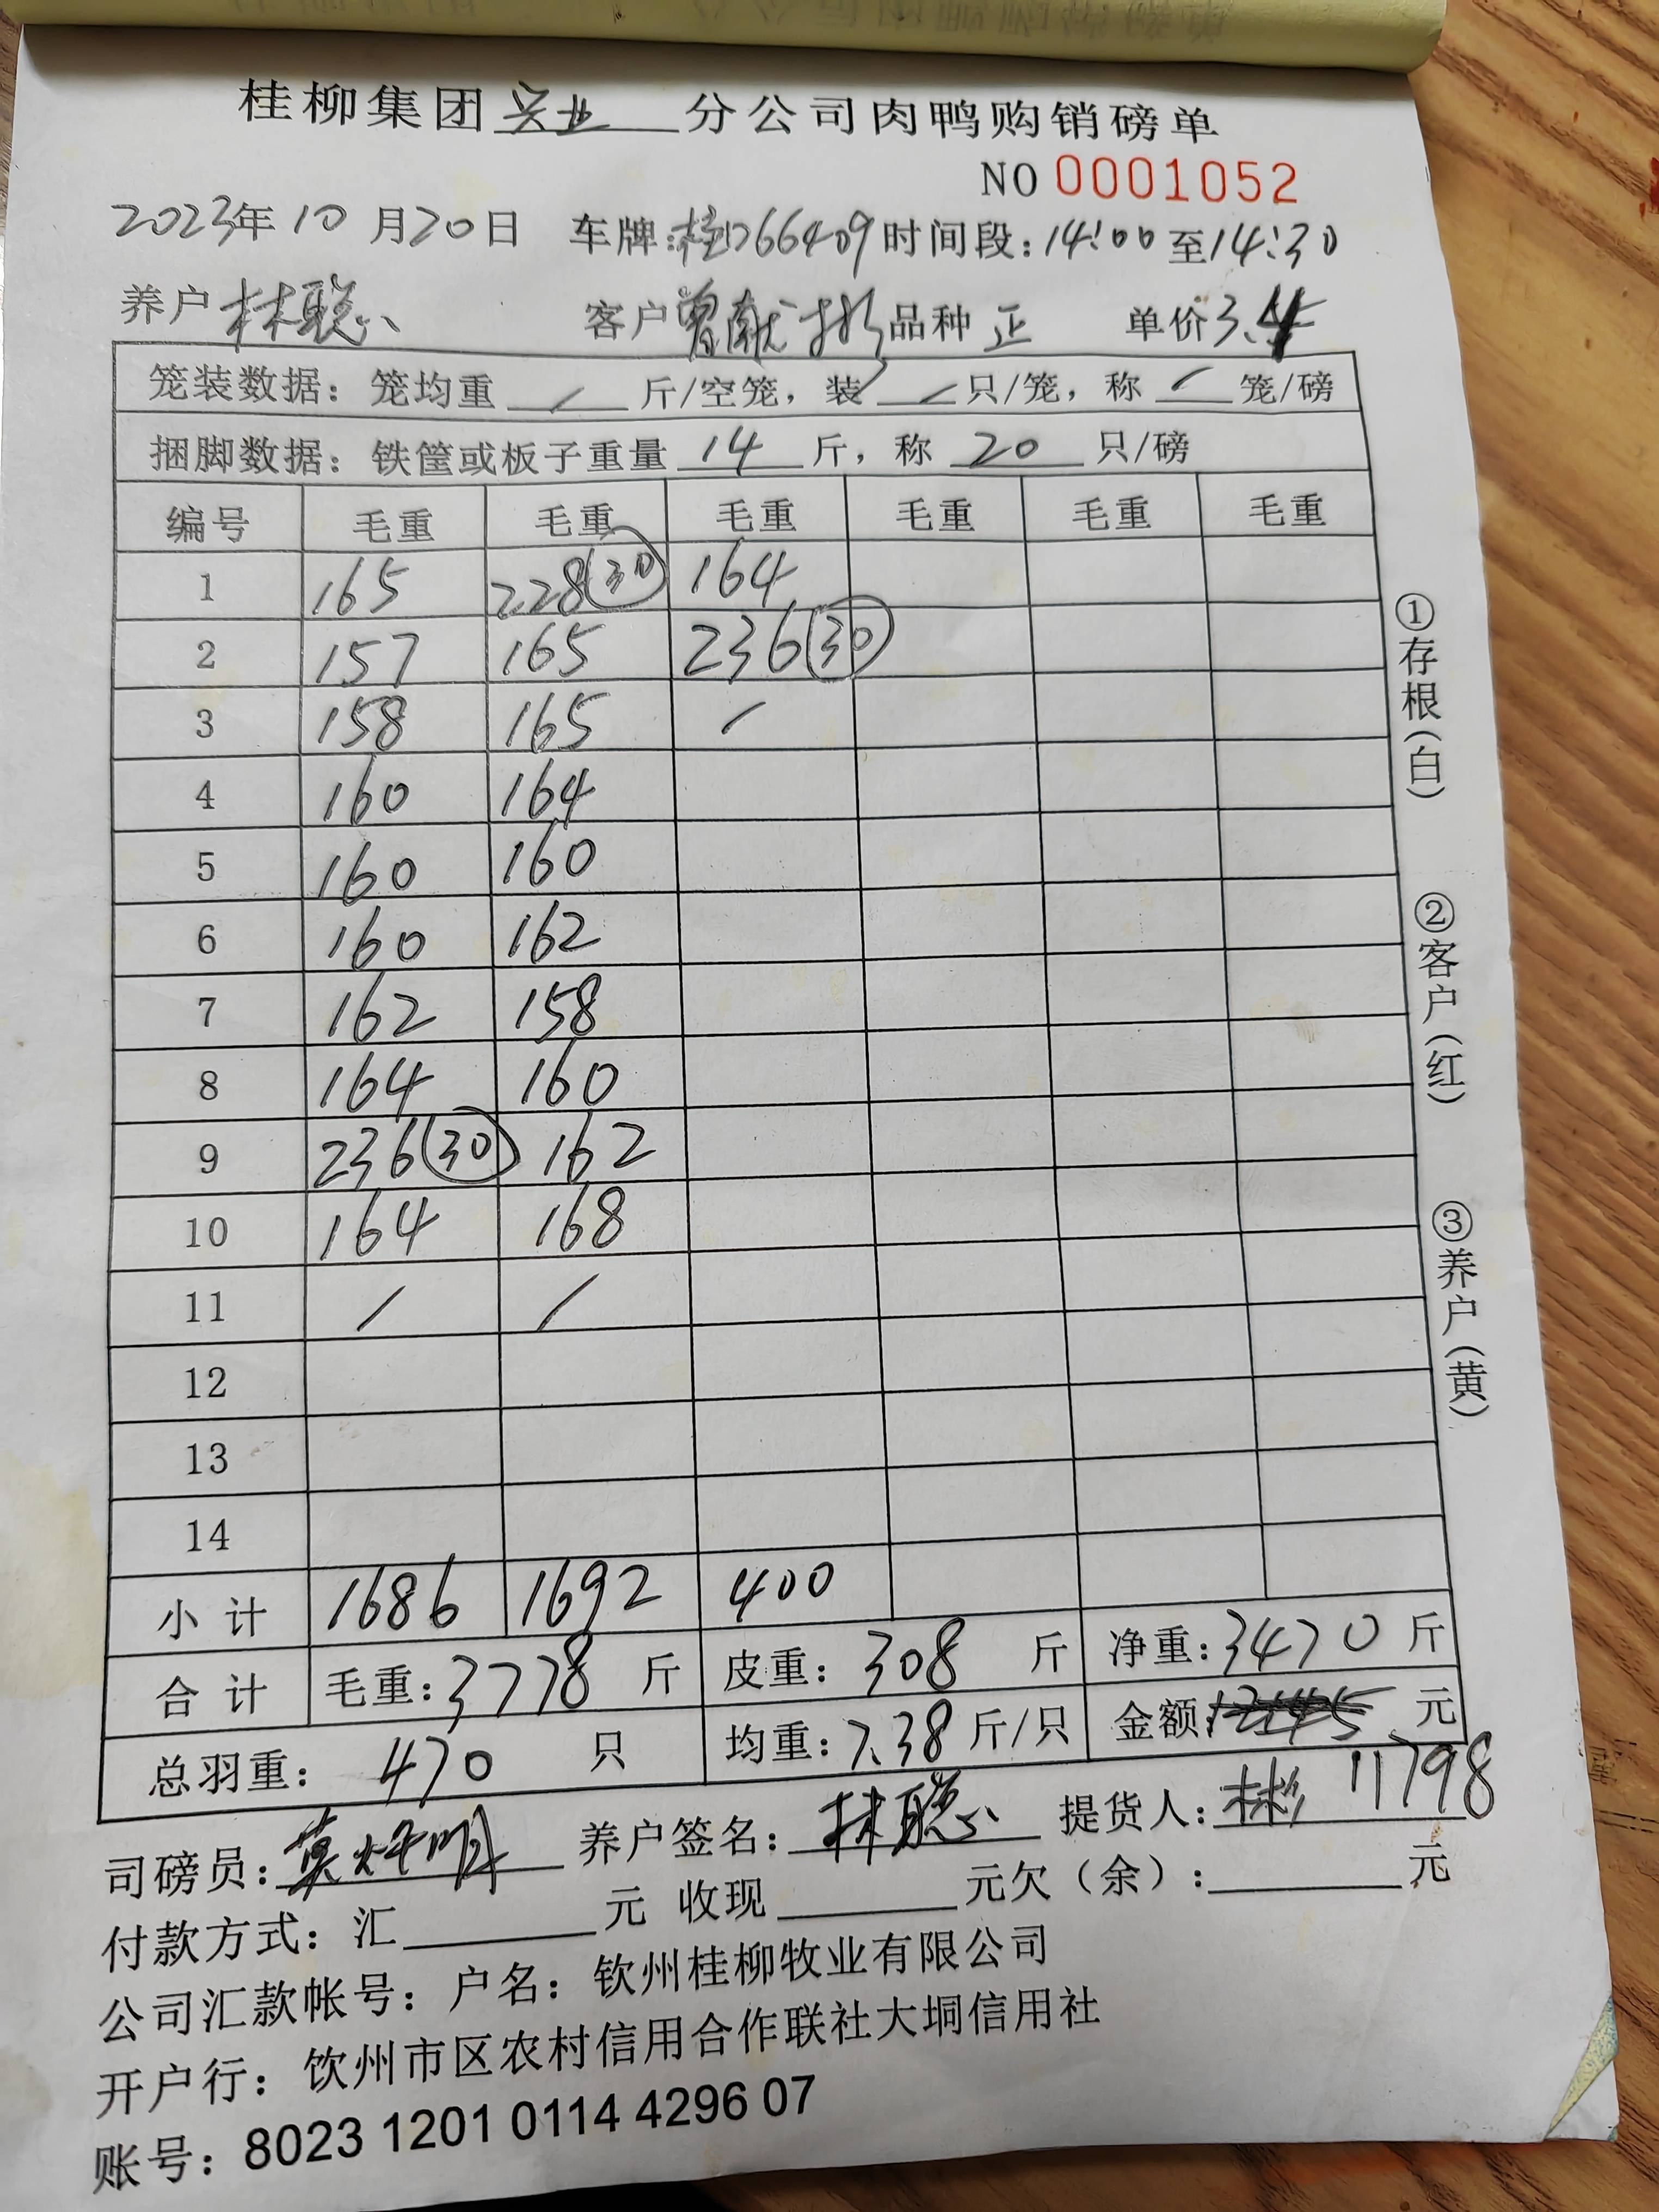 桂柳集团兴业分公司肉鸭购销磅单
NO 0001052
2023年10月20日 车牌:桂D66409 时间段:14:00至14:30
养户 林聪 客户 曾献 品种 正 单价 3.4
笼装数据: 笼均重 / 斤/空笼, 装 / 只/笼, 称 / 笼/磅
捆脚数据: 铁筐或板子重量 14 斤, 称 20 只/磅
编号 毛重 毛重 毛重 毛重 毛重 毛重
1 165 228(30) 164
2 157 165 236(30)
3 158 165 /
4 160 164
5 160 160
6 160 162
7 162 158
8 164 160
9 236(30) 162
10 164 168
11 / /
12
13
14
小计 1686 1692 400
合计 毛重:3778 斤 皮重: 308 斤 净重:3470 斤
总羽重: 470 只 均重:7.38 斤/只 金额: 元
11798
司磅员:莫 明 养户签名: 林聪 提货人:林彬
付款方式: 汇 元 收现 元欠(余): 元
公司汇款帐号: 户名: 钦州桂柳牧业有限公司
开户行: 钦州市区农村信用合作联社大垌信用社
账号: 8023 1201 0114 4296 07
①存根(白)
②客户(红)
③养户(黄)